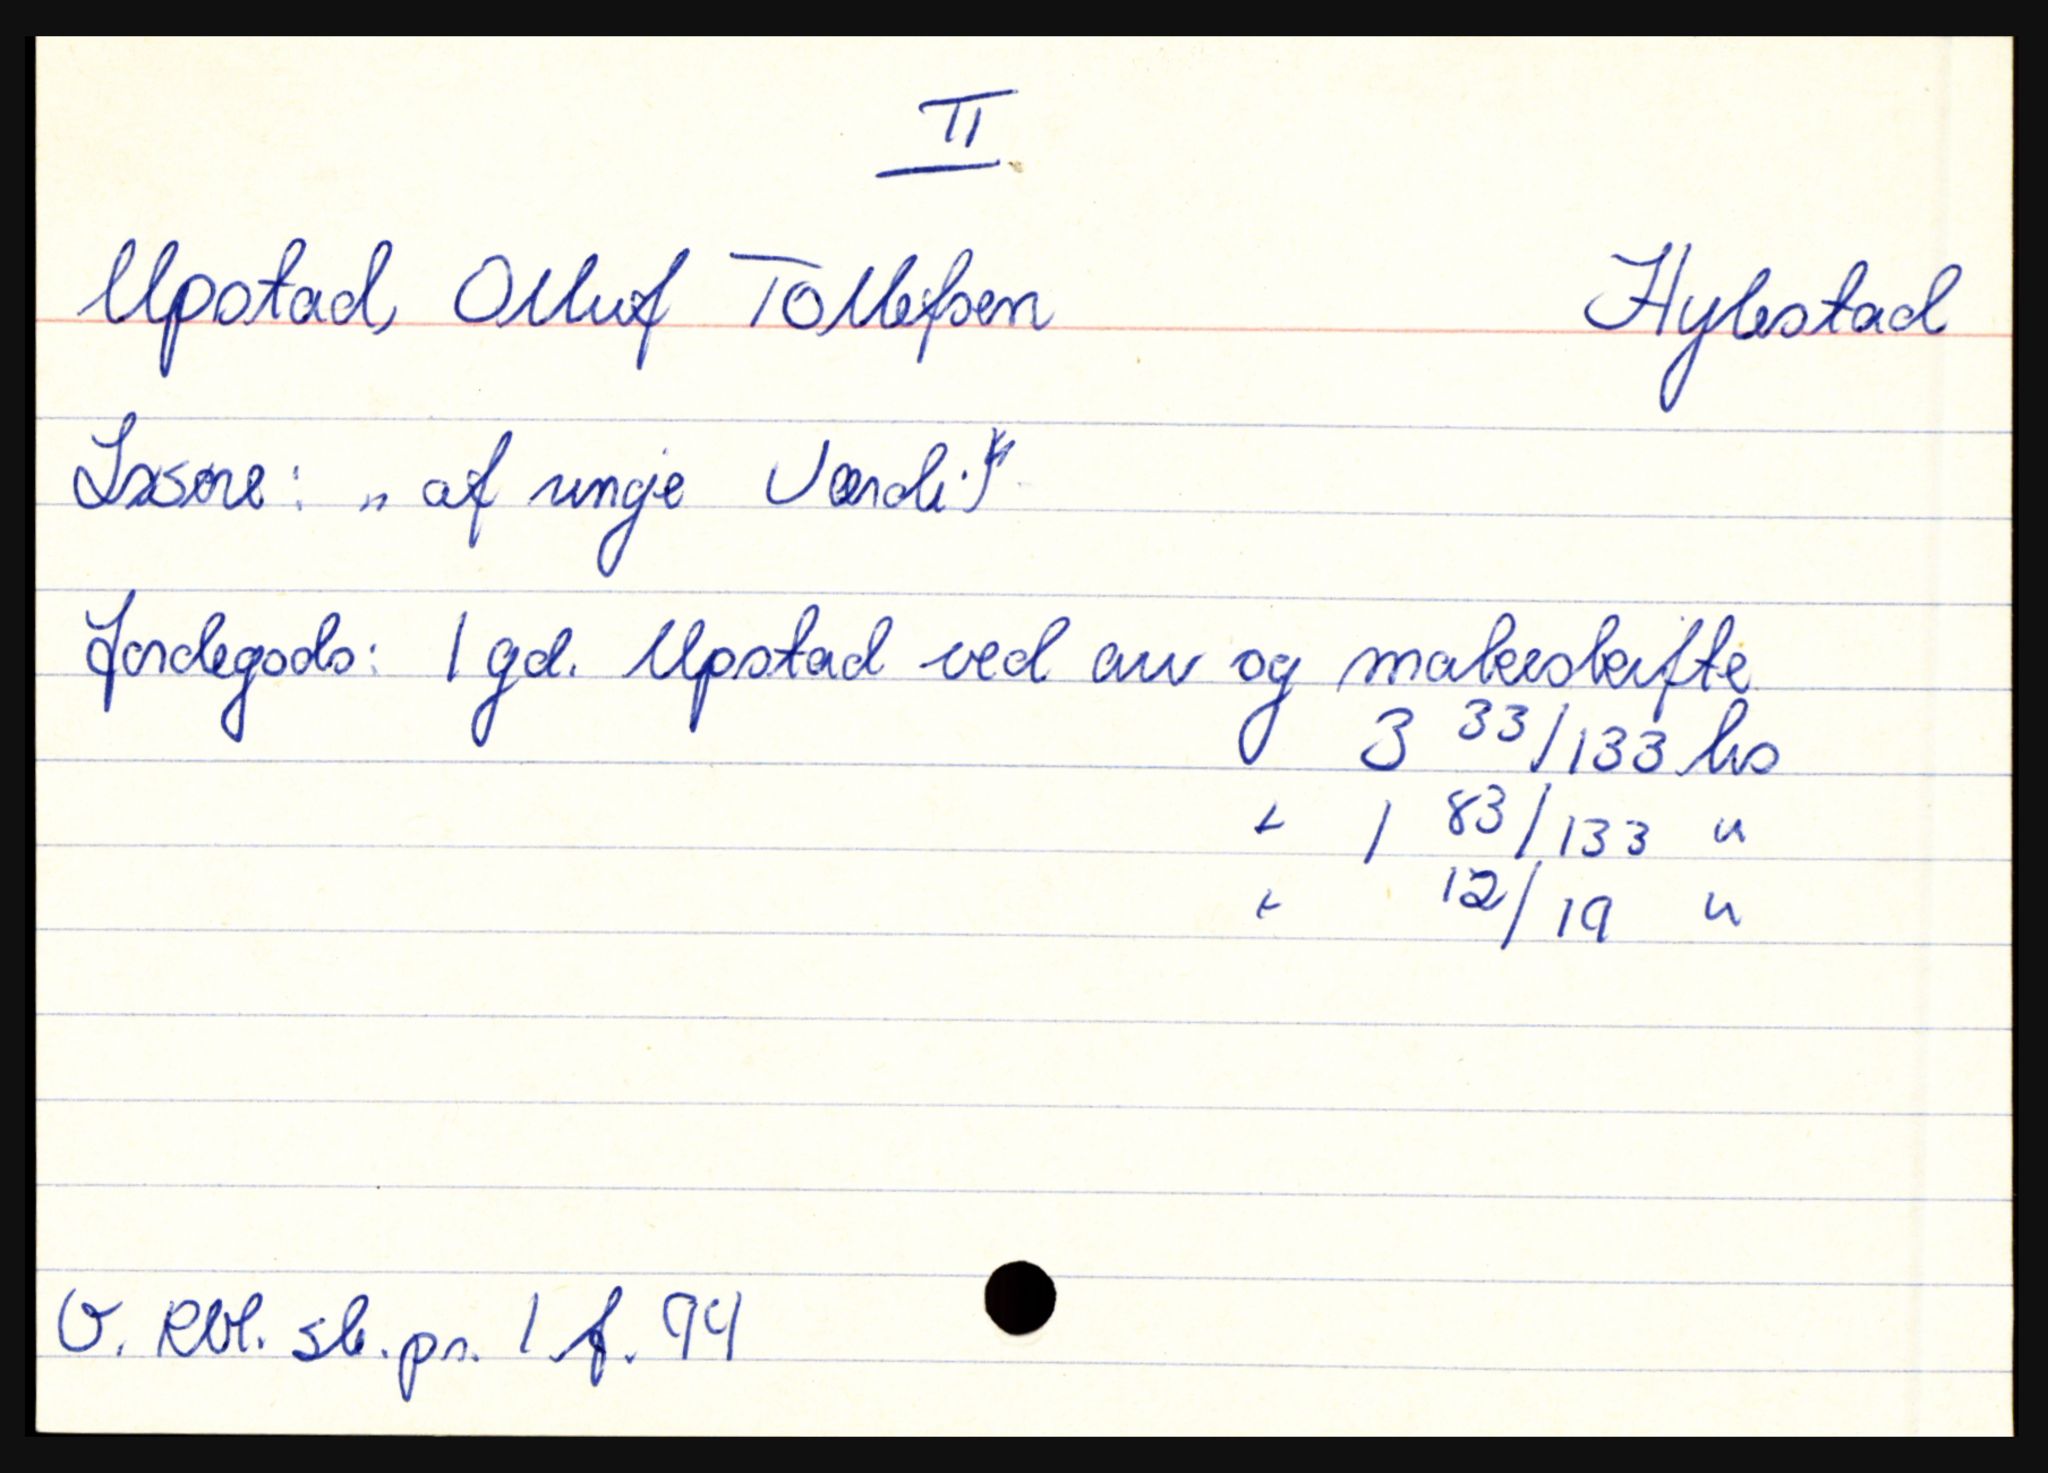 II
Upstad, Olluf Tollefsen Hylestad
Løsøre: „ af unge Værdi."
Jordegods: 1 gd. Upstad ved arv og makeskifte
3 33/133 hs
+ 1 83/133 "
+ 12/19 "
V. Rbl. sk.pr. 1 f. 94